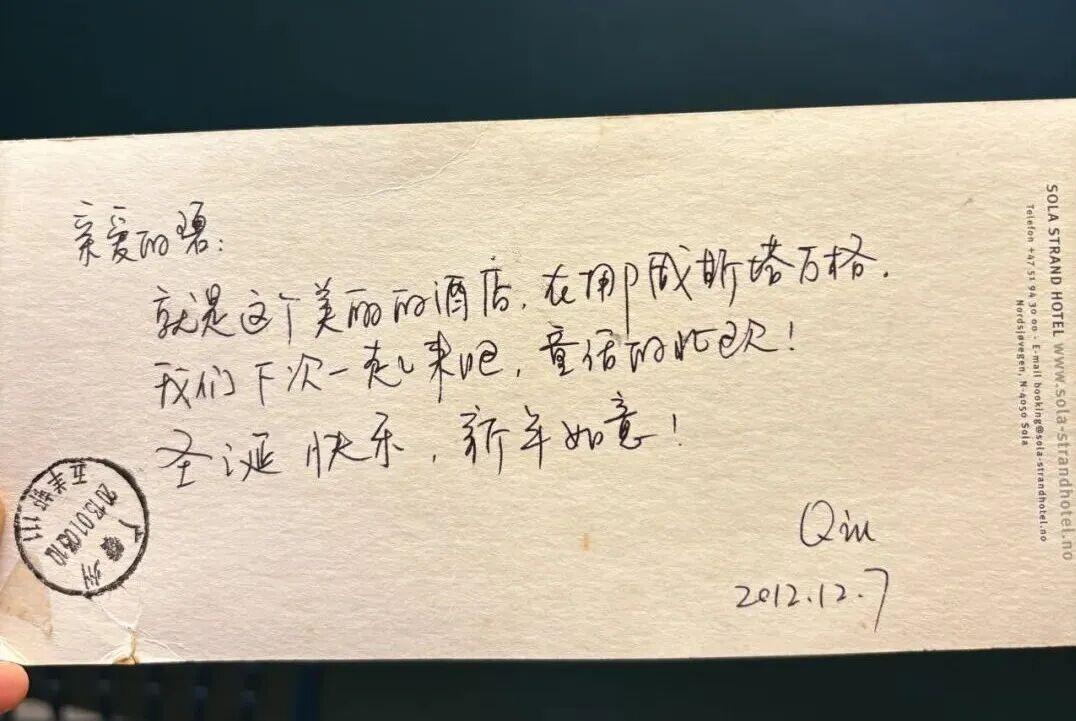 亲爱的碧:
就是这个美丽的酒店,在挪威斯塔万格.
我们下次一起来吧,童话的北欧!
圣诞快乐,新年如意!
Qiu
2012.12.7
SOLA STRAND HOTEL www.sola-strandhotel.no
Telefon +47 51 94 30 00 · E-mail booking@sola-strandhotel.no
Nordsjøvegen, N-4050 Sola
广东 广州
2013.01.08.10
五羊邨 111